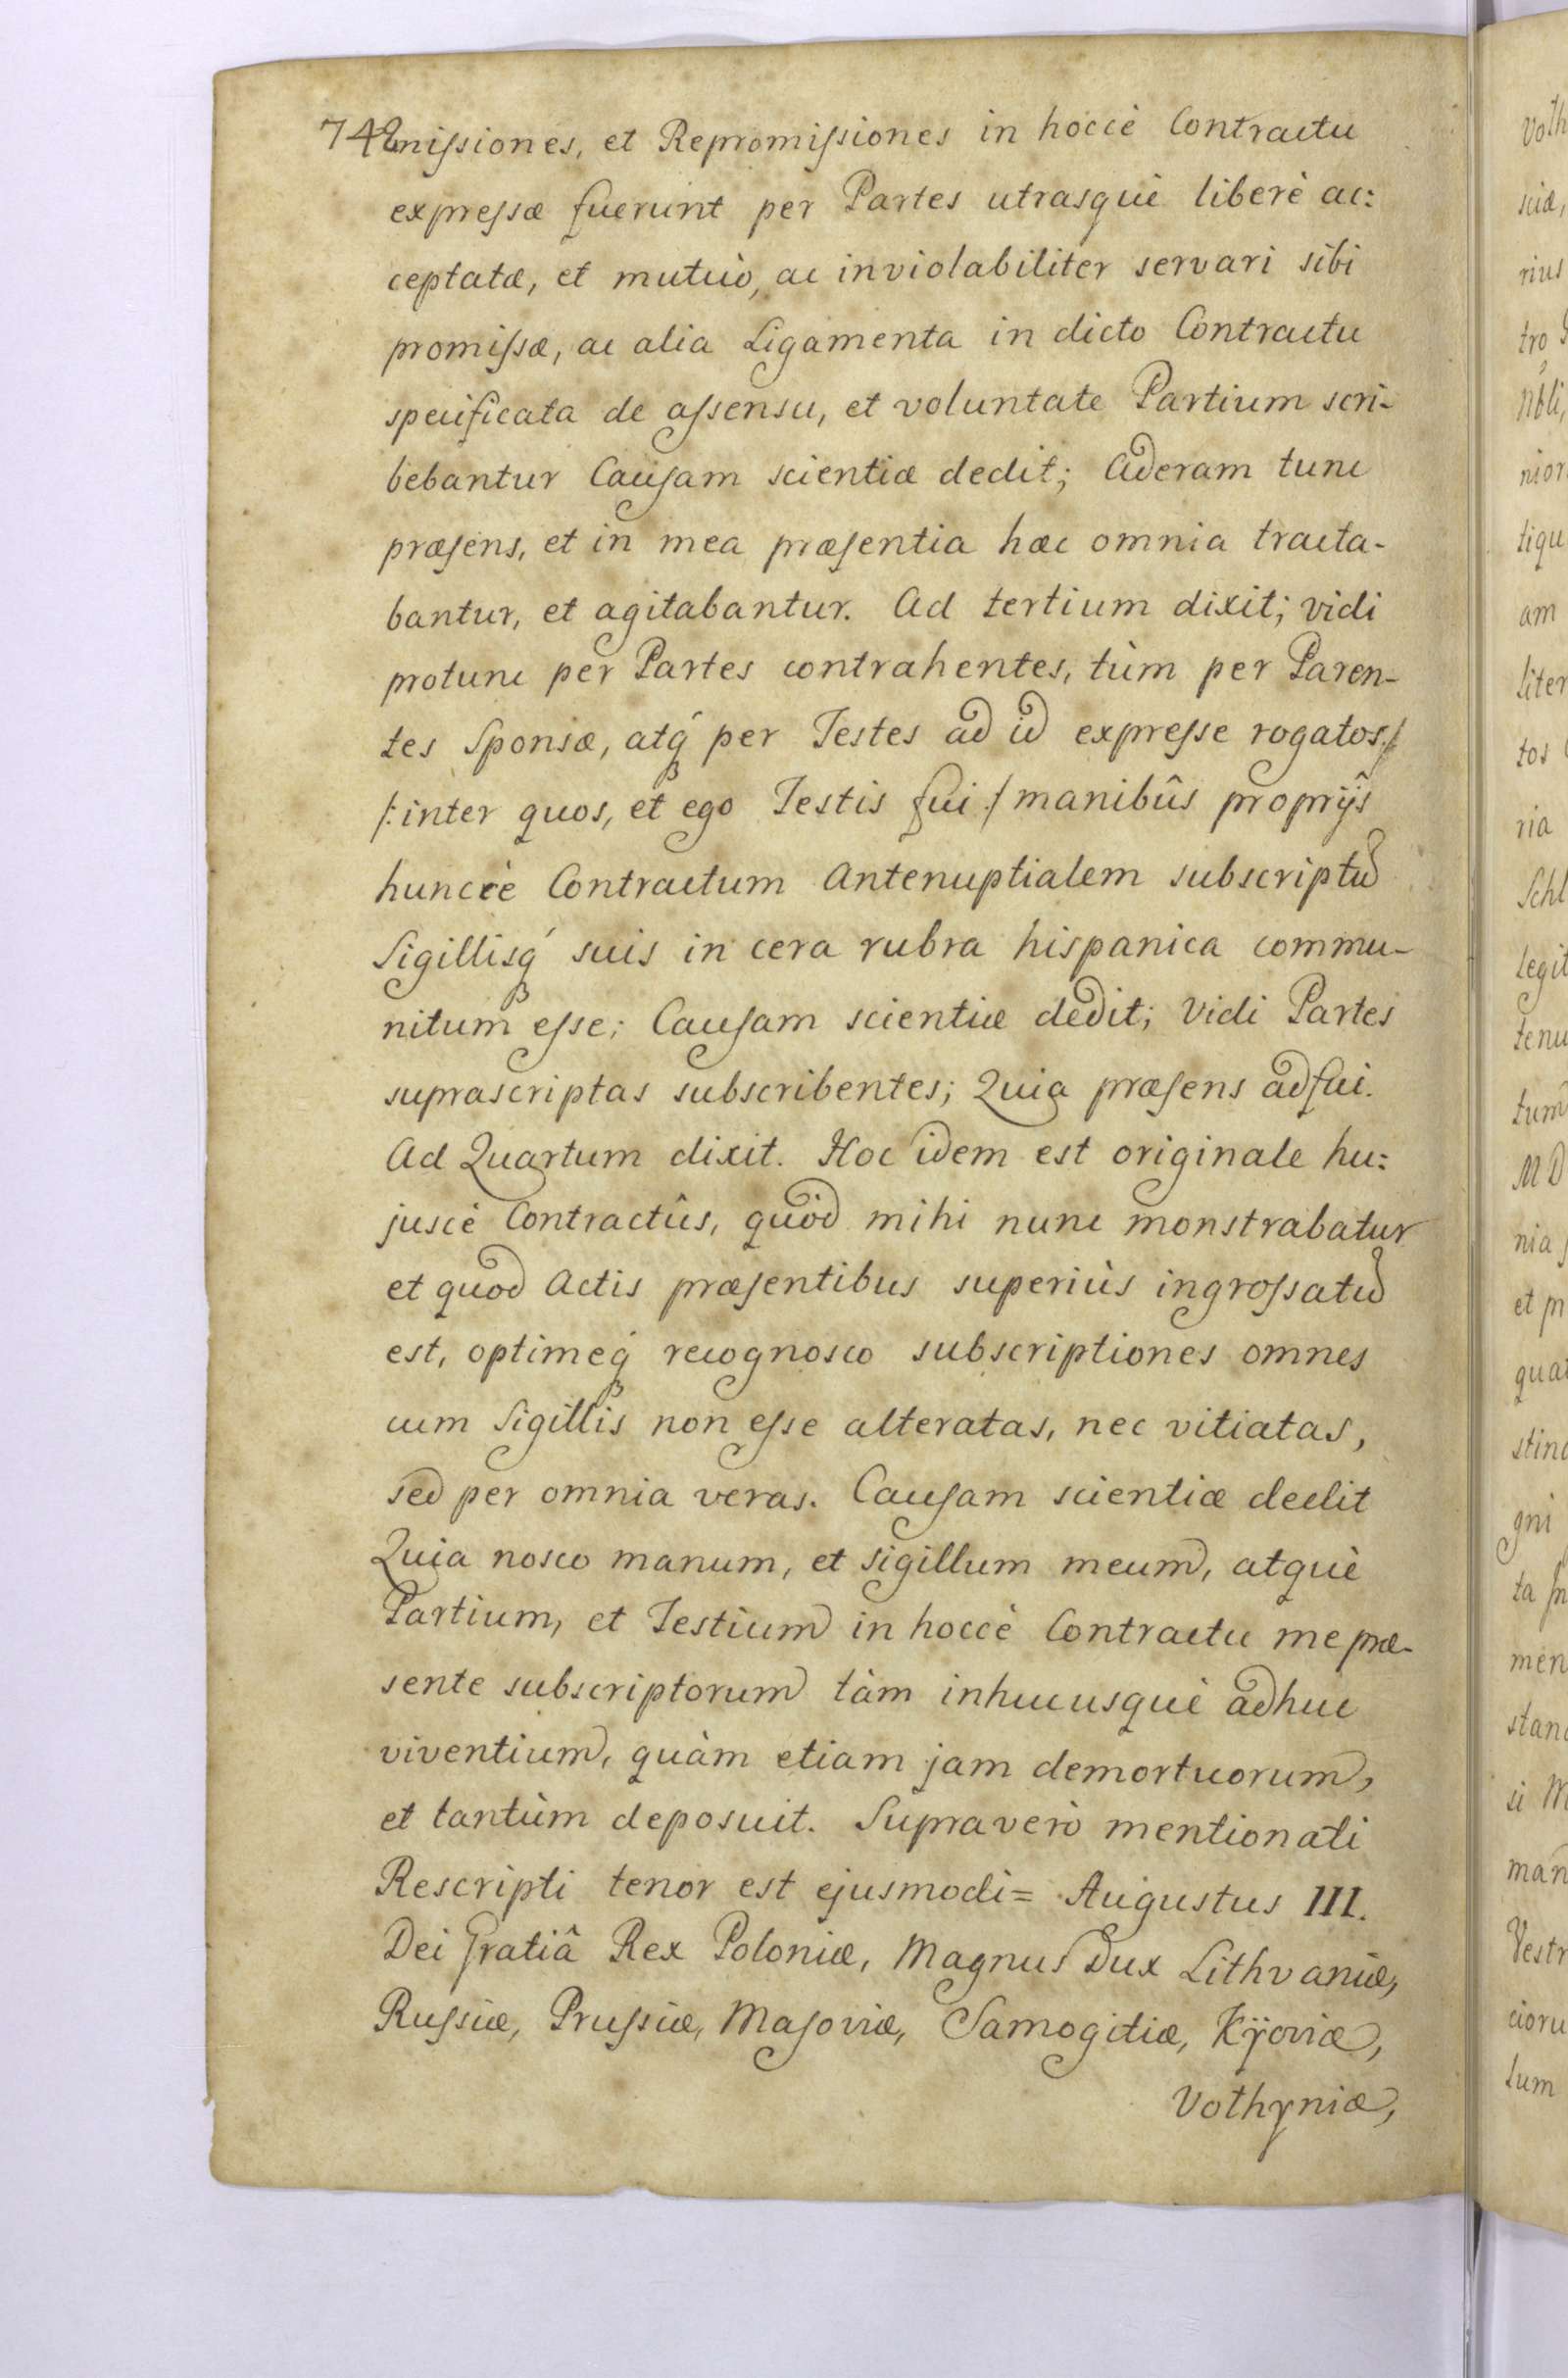 742
missiones, et Repromissiones in hoccè Contractu
expressæ fuerunt per Partes utrasquè liberè ac:
ceptatæ, et mutuò, ac inviolabiliter servari sibi
promissæ, ac alia Ligamenta in dicto Contractu
specificata de assensu, et voluntate Partium scri-
bebantur Causam scientiæ dedit; Aderam tunc
præsens, et in mea præsentia hæc omnia tracta-
bantur, et agitabantur. Ad tertium dixit; vidi
protunc per Partes contrahentes, tùm per Paren-
tes Sponsæ, atq́ per Testes ad id expresse rogatos./
/:inter quos, et ego Testis fui:/ manibûs proprijs
huncce Contractum Antenuptialem subscriptũ
Sigillisq́ suis in cera rubra hispanica commu-
nitum esse; Causam scientiæ dedit; Vidi Partes
suprascriptas subscribentes; Quia præsens adfui.
Ad Quartum dixit. Hoc idem est originale hu:
juscè Contractûs, quòd mihi nunc monstrabatur
et quod Actis præsentibus superiùs ingrossatũ
est, optimeq́ recognosco subscriptiones omnes
cum Sigillis non esse alteratas, nec vitiatas,
sed per omnia veras. Causam scientiæ dedit
Quia nosco manum, et sigillum meum, atquè
Partium, et Testium in hoccè Contractu me præ-
sente subscriptorum tàm inhucusquè adhuc
viventium, quàm etiam jam demortuorum,
et tantùm deposuit. Supraverò mentionati
Rescripti tenor est ejusmodi= Augustus III.
Dei Gratiâ Rex Poloniæ, Magnus Dux Lithvaniæ,
Russiæ, Prussiæ, Masoviæ, Samogitiæ, Kÿoviæ,
Volhyniæ,